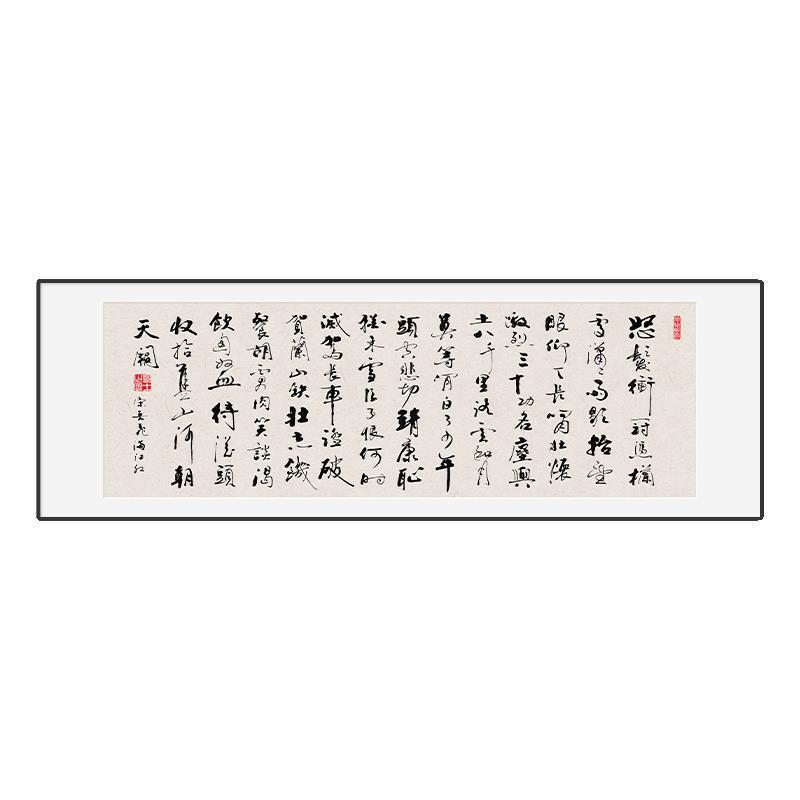 怒髮衝冠憑欄
處瀟〻雨歇抬望
眼仰天長嘯壯懷
激烈三十功名塵與
土八千里路雲和月
莫等閒白了少年
頭空悲切靖康恥
猶未雪臣子恨何時
滅駕長車踏破
賀蘭山缺壯志饑
餐胡虜肉笑談渴
飲匈奴血待從頭
收拾舊山河朝
天闕
宋岳飛滿江紅